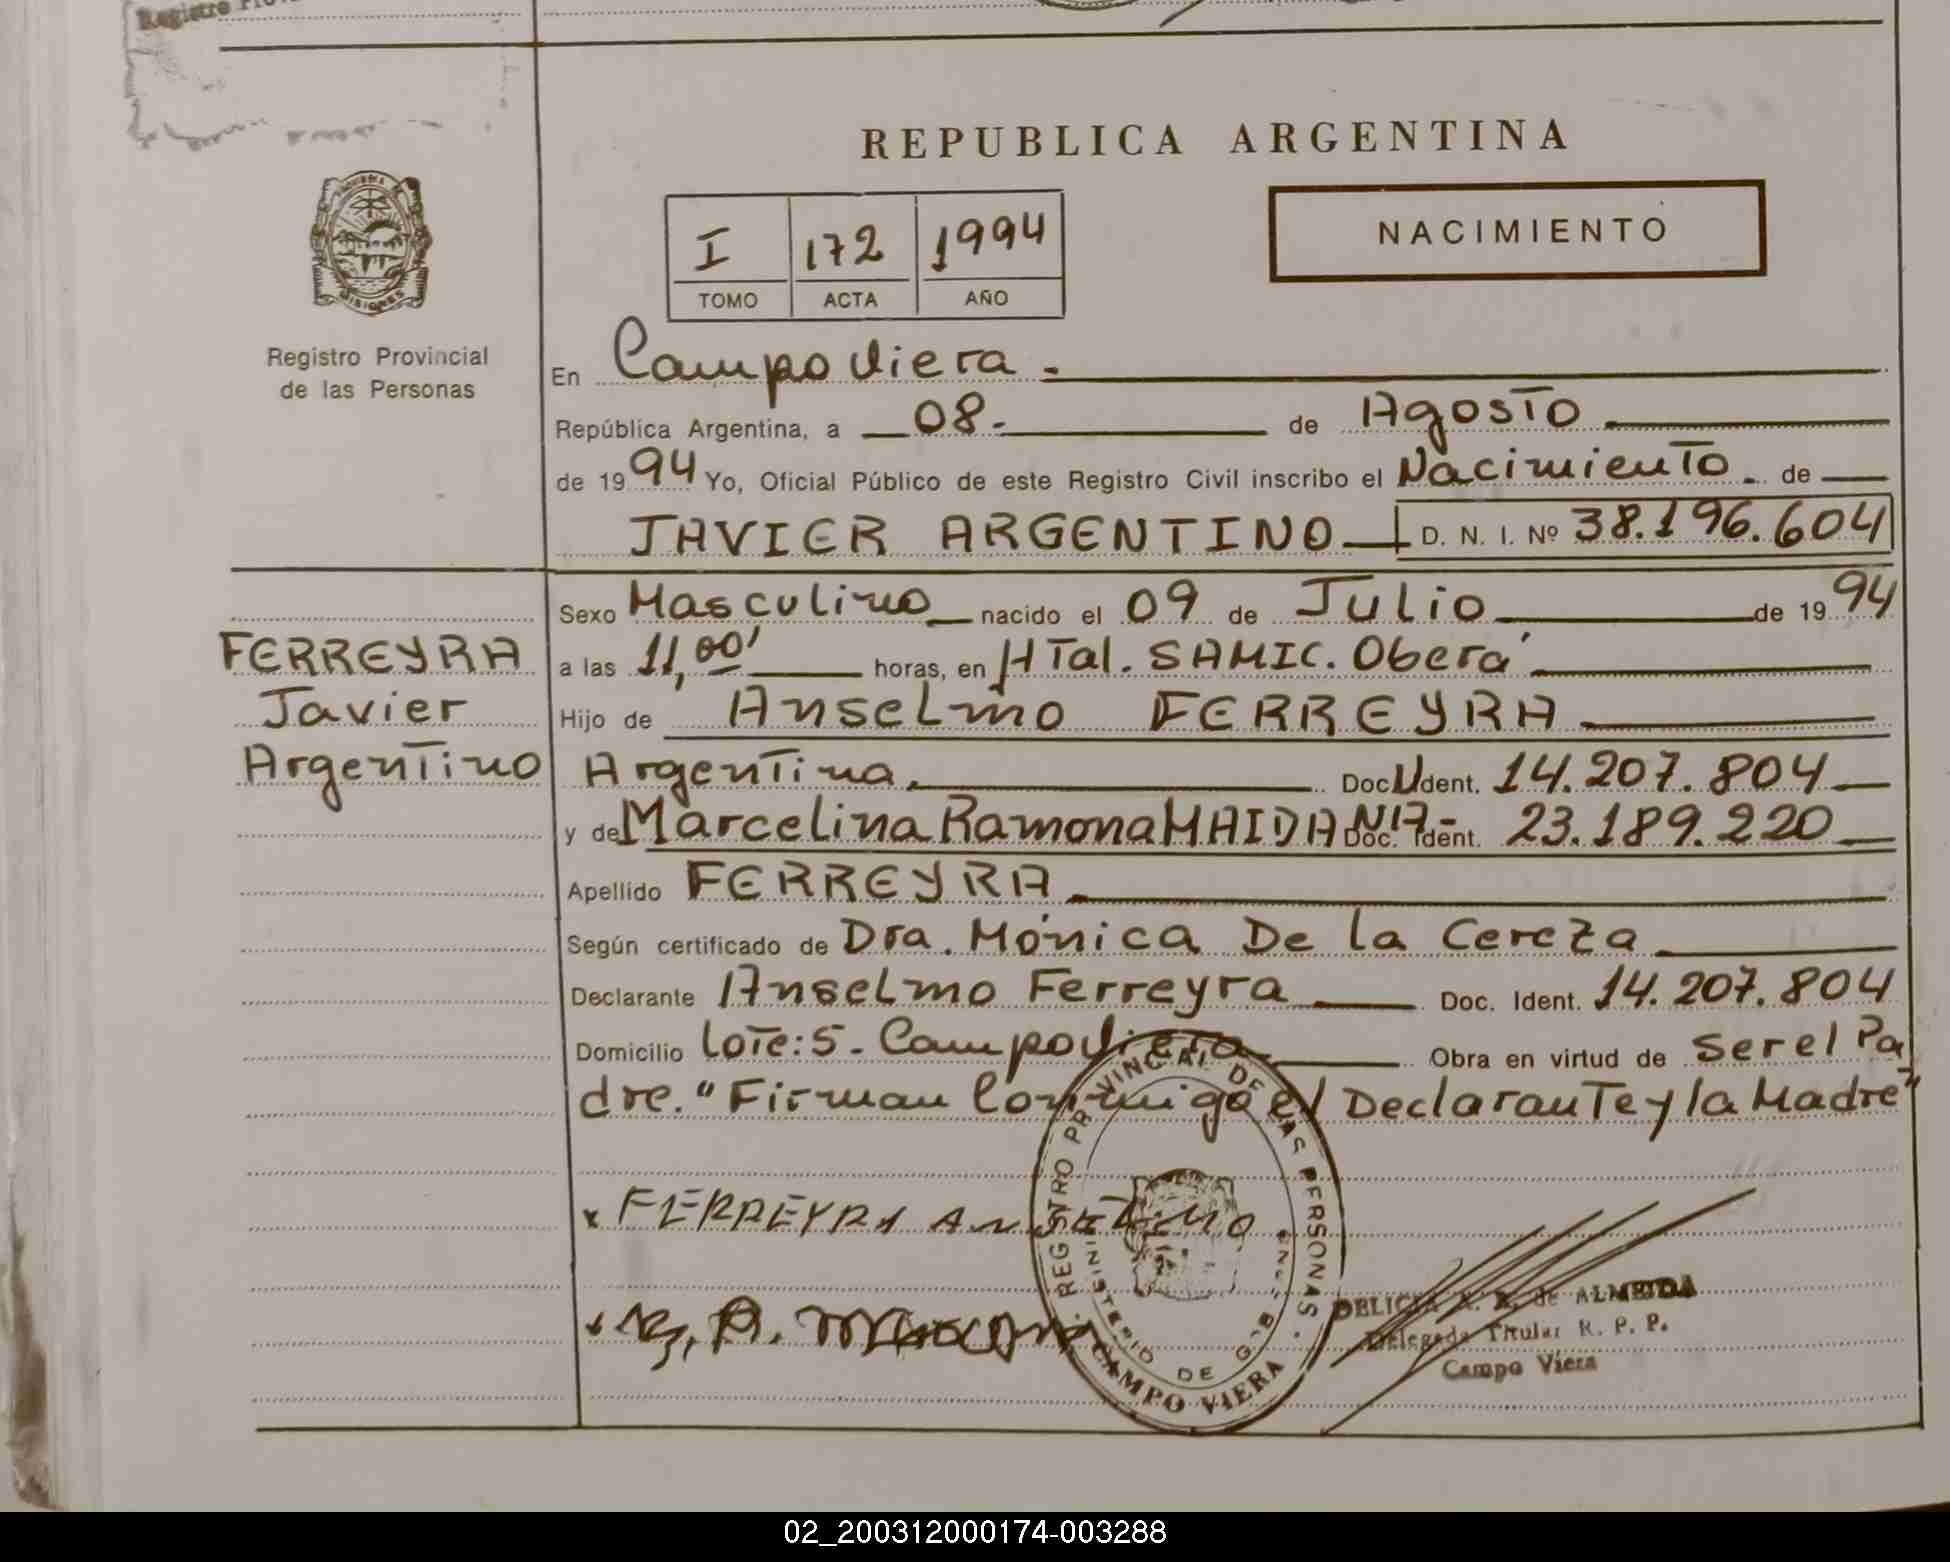 Registro
REPUBLICA ARGENTINA
NACIMIENTO
I 172 1994
TOMO ACTA AÑO
MISIONES
Registro Provincial
de las Personas
En Campo Viera.
República Argentina, a 08. de Agosto
de 1994 Yo, Oficial Público de este Registro Civil inscribo el Nacimiento. de
JAVIER ARGENTINO D. N. I. Nº 38.196.604
Sexo Masculino nacido el 09 de Julio de 1994
FERREYRA
Javier
Argentino
a las 11,00' horas, en HTal. SAMIC. Oberá
Hijo de Anselmo FERREYRA
Argentina. Doc. Ident. 14.207.804
y de Marcelina Ramona MAIDANA- Doc. Ident. 23.189.220
Apellido FERREYRA
Según certificado de Dra. Mónica De la Cereza
Declarante Anselmo Ferreyra Doc. Ident. 14.207.804
Domicilio Lote: 5. Campo Viera Obra en virtud de ser el Pa
dre. "Firman Conmigo el Declarante y la Madre"
FERREYRA ANSELMO
REGISTRO PROVINCIAL DE LAS PERSONAS
MINISTERIO DE GOB
CAMPO VIERA
DELICIA de ALMEIDA
Delegada Titular R. P. P.
Campo Viera
02_200312000174-003288